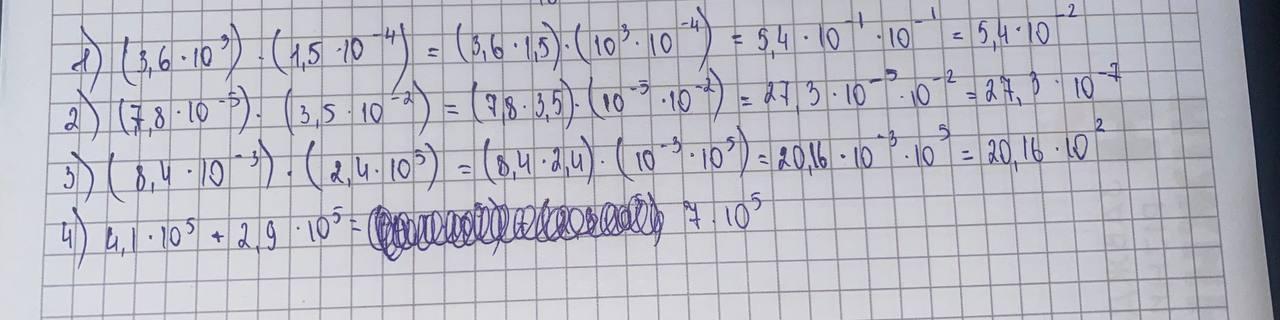 1) (3,6 · 10³) · (1,5 · 10⁻⁴) = (3,6 · 1,5) · (10³ · 10⁻⁴) = 5,4 · 10⁻¹ · 10⁻¹ = 5,4 · 10⁻²
2) (7,8 · 10⁻⁵) · (3,5 · 10⁻²) = (7,8 · 3,5) · (10⁻⁵ · 10⁻²) = 27,3 · 10⁻⁵ · 10⁻² = 27,3 · 10⁻⁷
3) (8,4 · 10⁻³) · (2,4 · 10⁵) = (8,4 · 2,4) · (10⁻³ · 10⁵) = 20,16 · 10⁻³ · 10⁵ = 20,16 · 10²
4) 4,1 · 10⁵ + 2,9 · 10⁵ = 7 · 10⁵